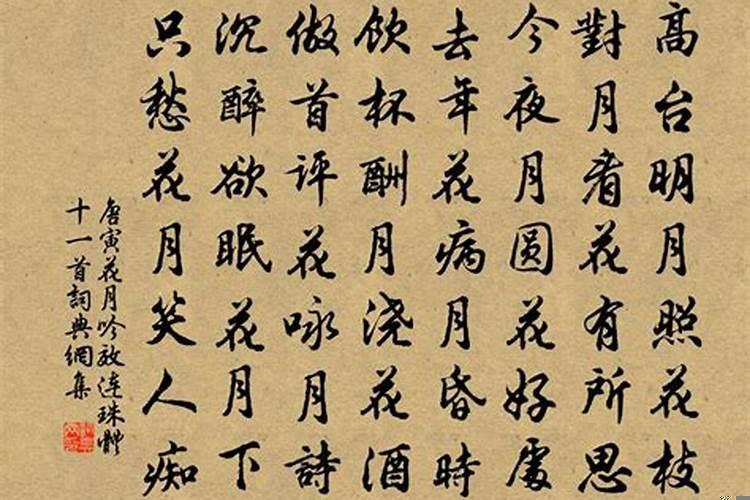 高台明月照花枝
對月看花有所思
今夜月圓花好處
去年花病月昏時
飲杯酬月浇花酒
做首评花咏月詩
沉醉欲眠花月下
只愁花月笑人痴
唐寅花月吟效连珠體
十一首詞典網集